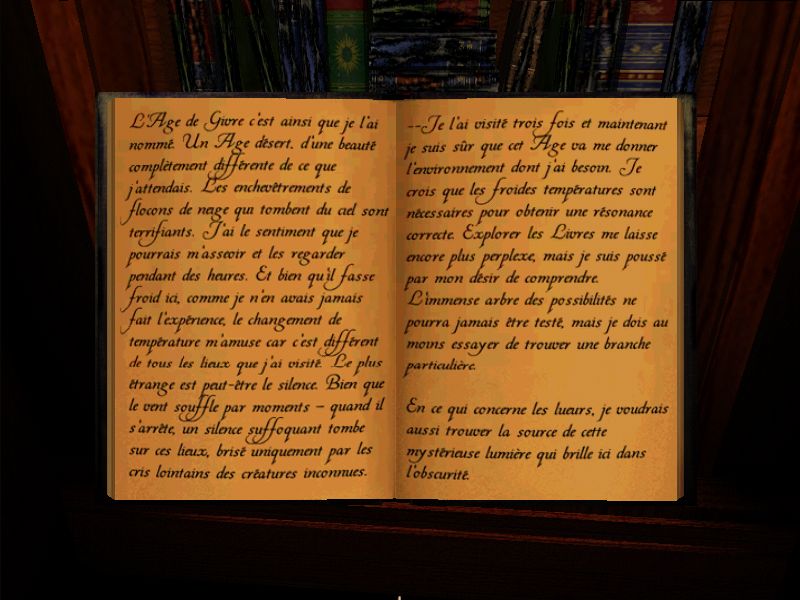 L'Age de Givre c'est ainsi que je l'ai
nommé. Un Age désert, d'une beauté
complètement différente de ce que
j'attendais. Les enchevêtrements de
flocons de neige qui tombent du ciel sont
terrifiants. J'ai le sentiment que je
pourrais m'asseoir et les regarder
pendant des heures. Et bien qu'il fasse
froid ici, comme je n'en avais jamais
fait l'expérience, le changement de
température m'amuse car c'est différent
de tous les lieux que j'ai visité. Le plus
étrange est peut-être le silence. Bien que
le vent souffle par moments – quand il
s'arrête, un silence suffoquant tombe
sur ces lieux, brisé uniquement par les
cris lointains des créatures inconnues.
--Je l'ai visité trois fois et maintenant
je suis sûr que cet Age va me donner
l'environnement dont j'ai besoin. Je
crois que les froides températures sont
nécessaires pour obtenir une résonance
correcte. Explorer les Livres me laisse
encore plus perplexe, mais je suis poussé
par mon désir de comprendre.
L'immense arbre des possibilités ne
pourra jamais être testé, mais je dois au
moins essayer de trouver une branche
particulière.
En ce qui concerne les lueurs, je voudrais
aussi trouver la source de cette
mystérieuse lumière qui brille ici dans
l'obscurité.